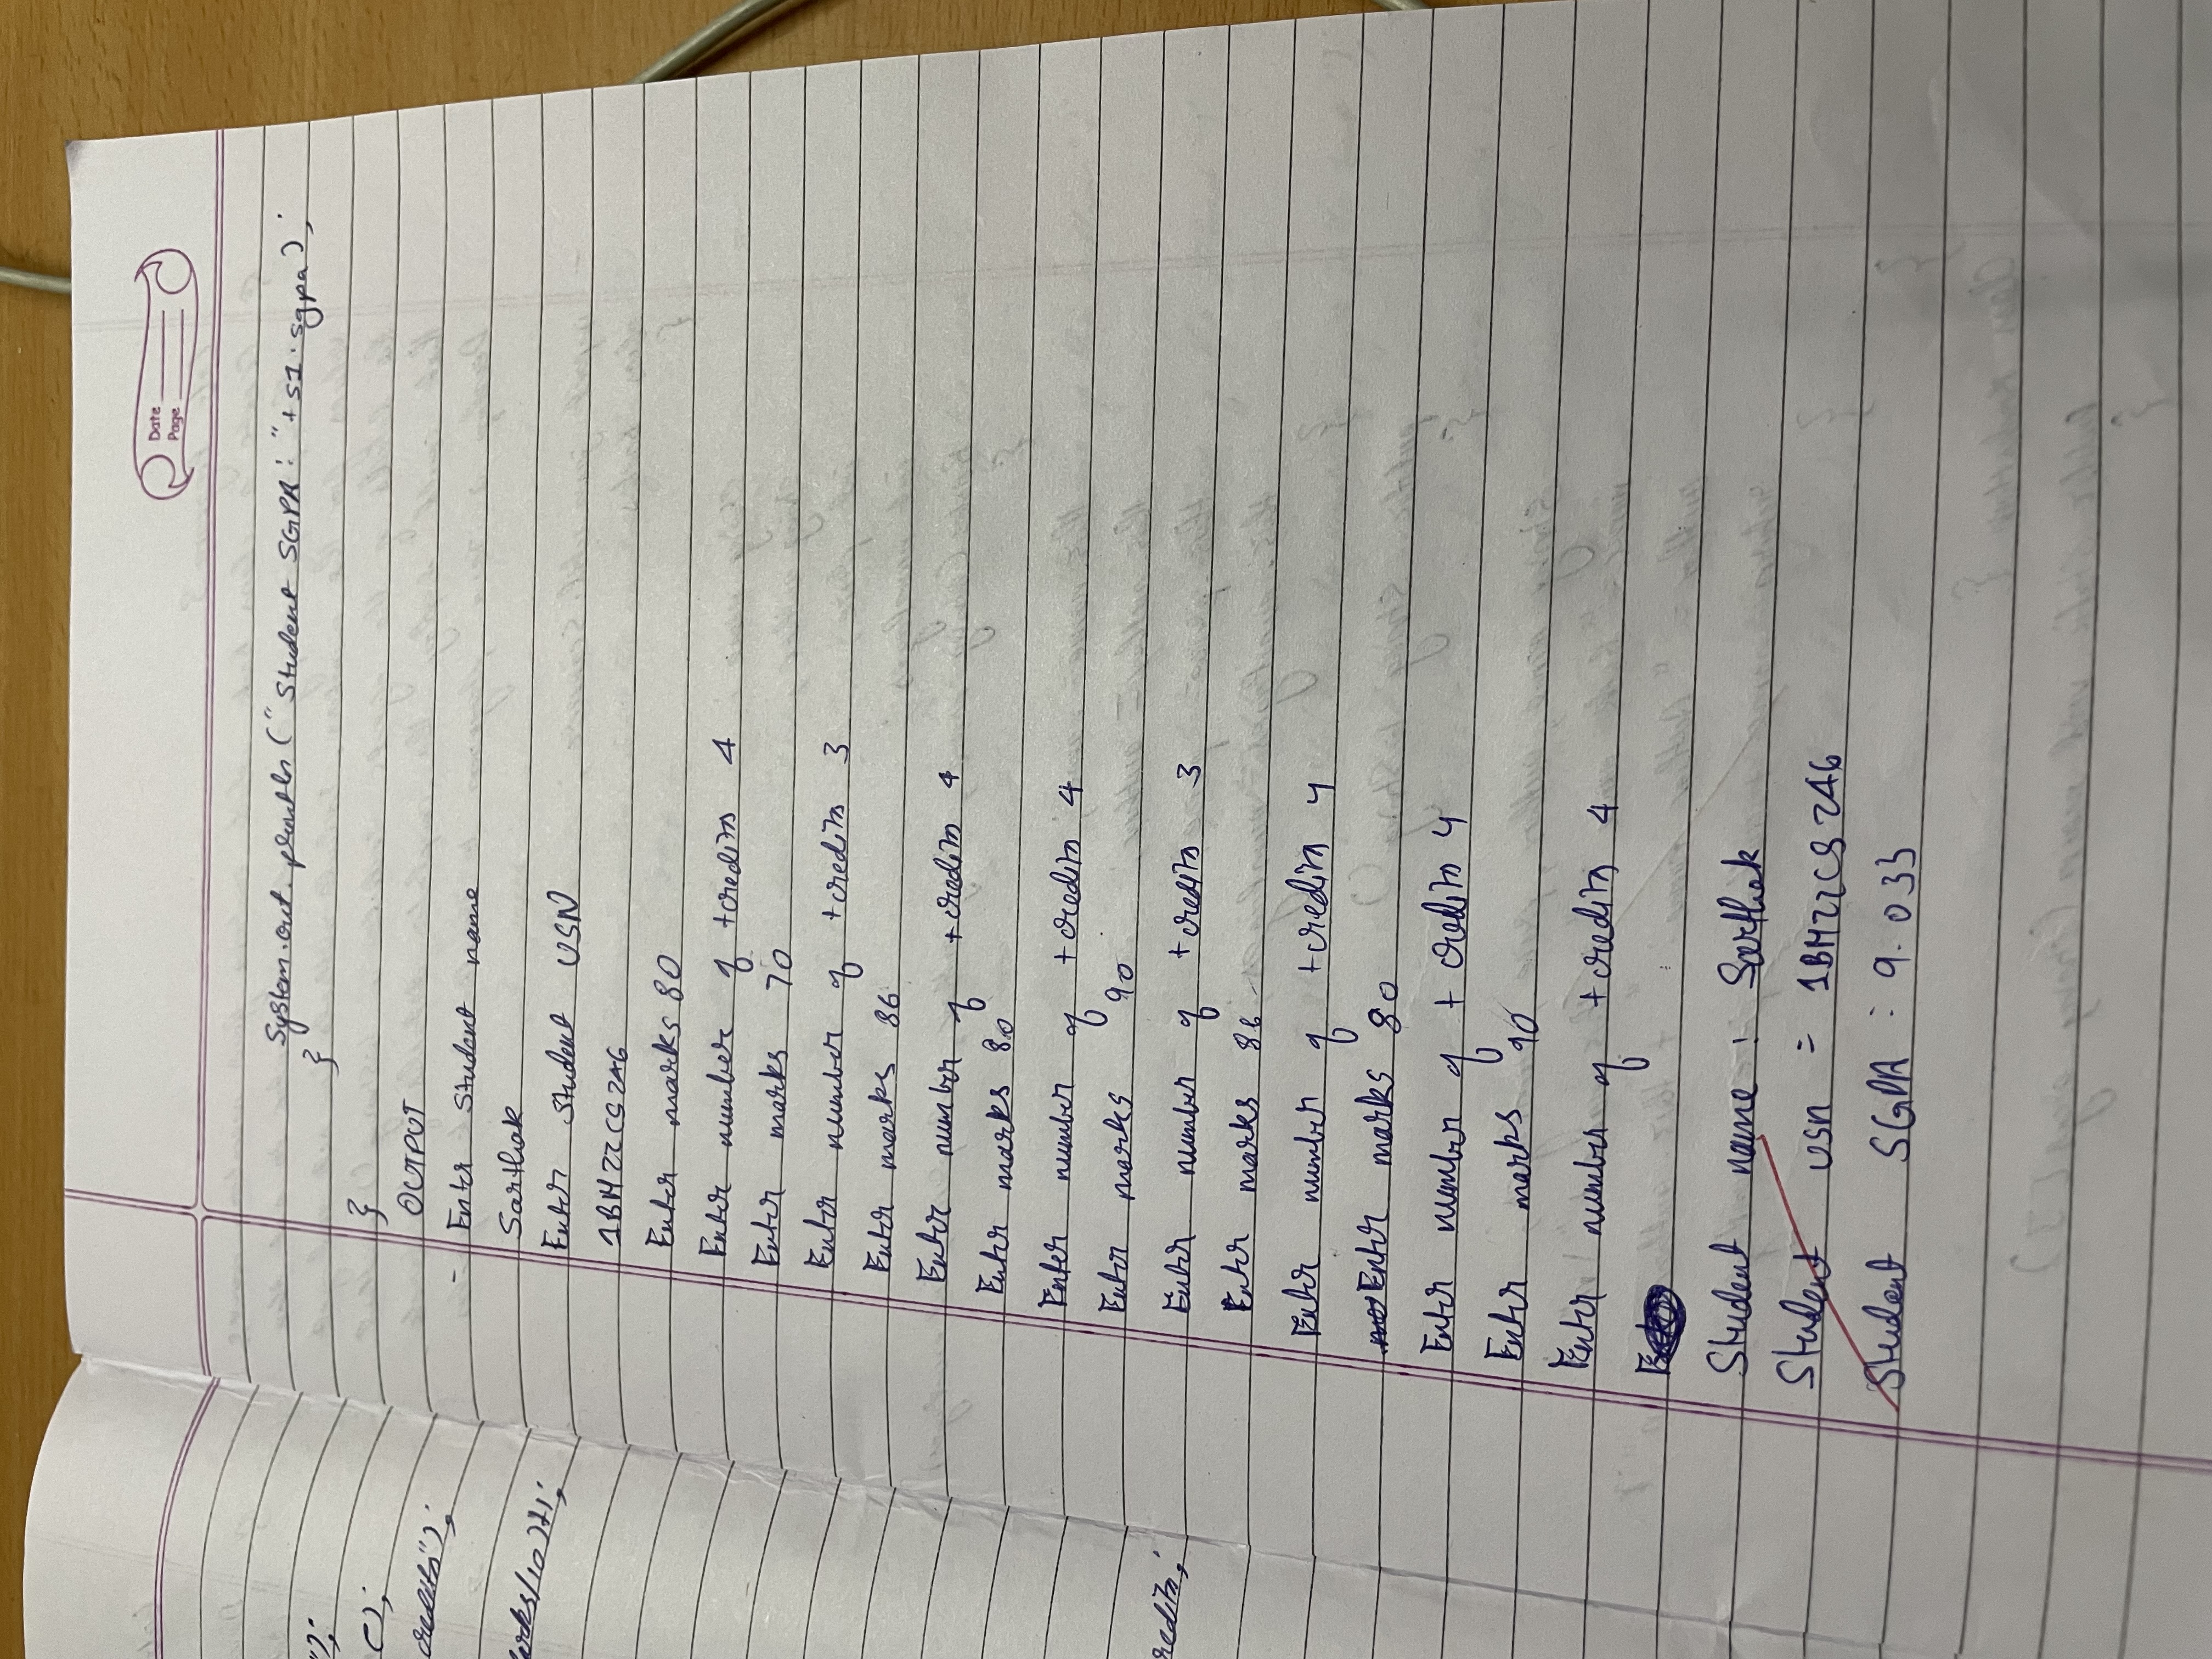 Date
Page
");
e);
credits");
arks/10)+1;
redits;
System.out.println("Student SGPA: "+s1.sgpa);
}
}
OUTPUT
- Enter Student name
Sarthak
Enter Student USN
1BM22CS246
Enter marks 80
Enter number of +credits 4
Enter marks 70
Enter number of +credits 3
Enter marks 86
Enter number of +credits 4
Enter marks 80
Enter number of +credits 4
Enter marks 90
Enter number of +credits 3
Enter marks 86
Enter number of +credits 4
Enter marks 80
Enter number of + credits 4
Enter marks 90
Enter number of +credits 4
Student name : Sarthak
Student usn = 1BM22CS246
Student SGPA : 9.033